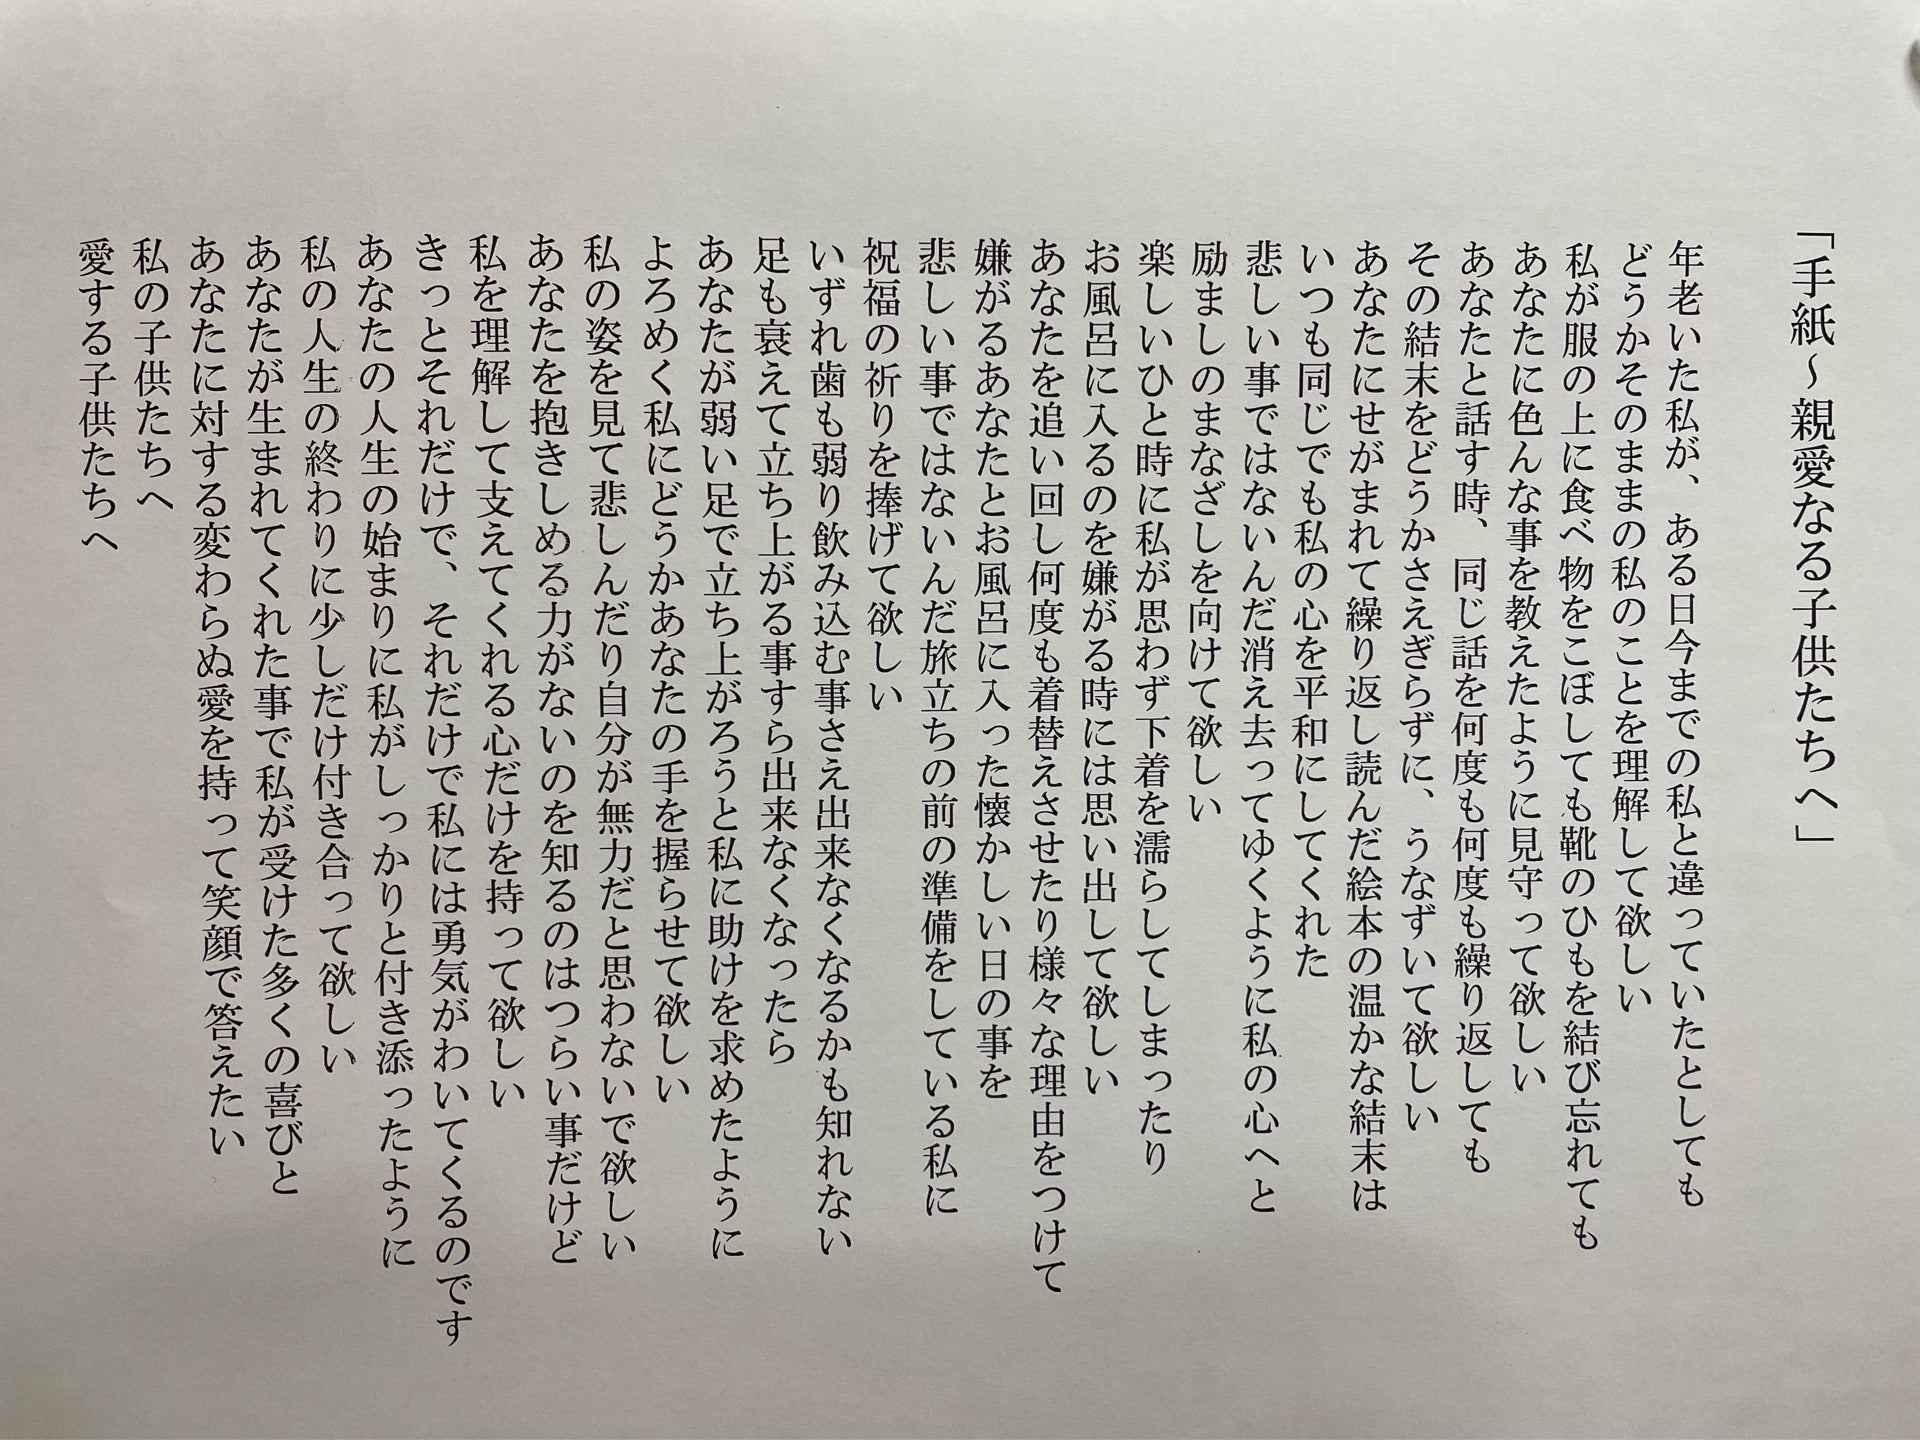 「手紙~親愛なる子供たちへ」
年老いた私が、ある日今までの私と違っていたとしても
どうかそのままの私のことを理解して欲しい
私が服の上に食べ物をこぼしても靴のひもを結び忘れても
あなたに色んな事を教えたように見守って欲しい
あなたと話す時、同じ話を何度も何度も繰り返しても
その結末をどうかさえぎらずに、うなずいて欲しい
あなたにせがまれて繰り返し読んだ絵本の温かな結末は
いつも同じでも私の心を平和にしてくれた
悲しい事ではないんだ消え去ってゆくように私の心へと
励ましのまなざしを向けて欲しい
楽しいひと時に私が思わず下着を濡らしてしまったり
お風呂に入るのを嫌がる時には思い出して欲しい
あなたを追い回し何度も着替えさせたり様々な理由をつけて
嫌がるあなたとお風呂に入った懐かしい日の事を
悲しい事ではないんだ旅立ちの前の準備をしている私に
祝福の祈りを捧げて欲しい
いずれ歯も弱り飲み込む事さえ出来なくなるかも知れない
足も衰えて立ち上がる事すら出来なくなったら
あなたが弱い足で立ち上がろうと私に助けを求めたように
よろめく私にどうかあなたの手を握らせて欲しい
私の姿を見て悲しんだり自分が無力だと思わないで欲しい
あなたを抱きしめる力がないのを知るのはつらい事だけど
私を理解して支えてくれる心だけを持って欲しい
きっとそれだけで、それだけで私には勇気がわいてくるのです
あなたの人生の始まりに私がしっかりと付き添ったように
私の人生の終わりに少しだけ付き合って欲しい
あなたが生まれてくれた事で私が受けた多くの喜びと
あなたに対する変わらぬ愛を持って笑顔で答えたい
私の子供たちへ
愛する子供たちへ